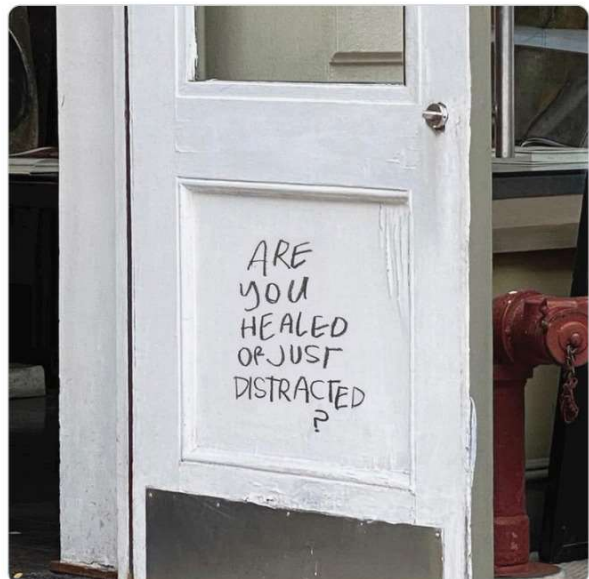 ARE
YOU
HEALED
OR JUST
DISTRACTED
?